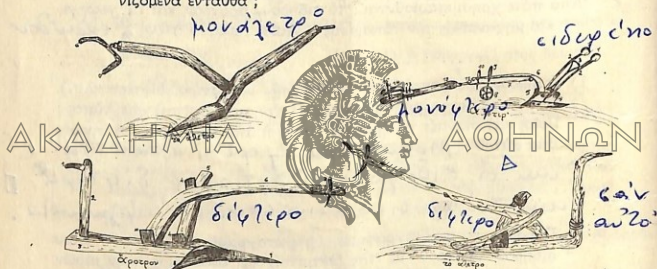 νιζόμενα ἐνταῦθα ;
μονάλετρο
σιδερένιο
μονόφτερο
ΑΚΑΔΗΜΙΑ ΑΘΗΝΩΝ
τὸ ἄλετρο
δίφτερο
δίφτερο
σὰν
αὐτό
ἄροτρον
τὸ ἄλετρο